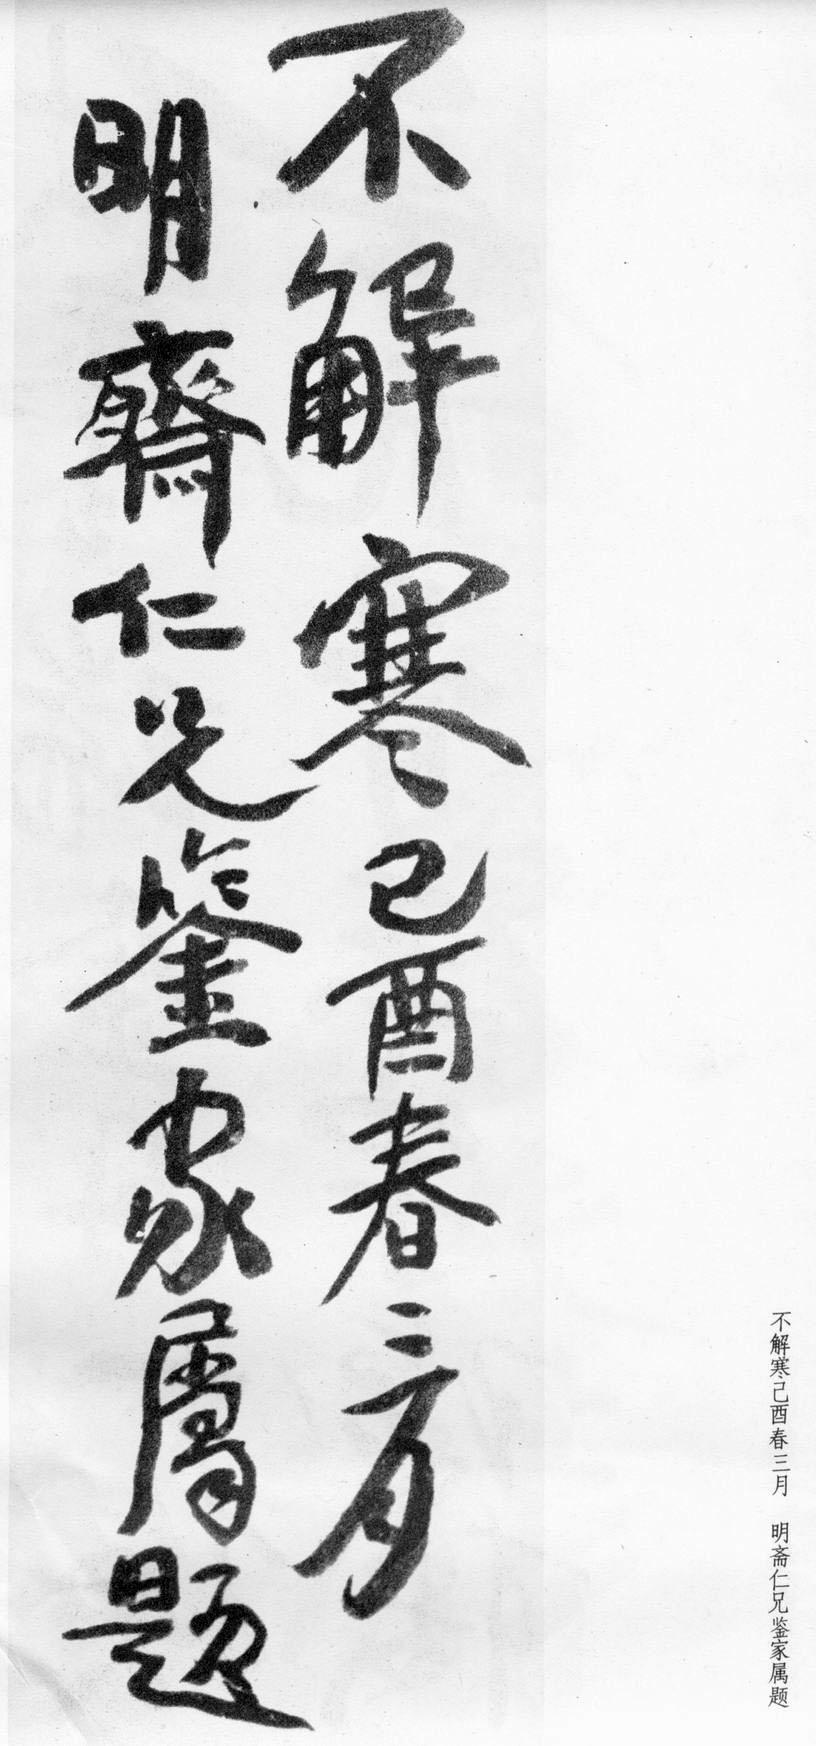 不解寒己酉春三月
明齋仁兄鑒家屬題
不解寒己酉春三月　明斋仁兄鉴家属题